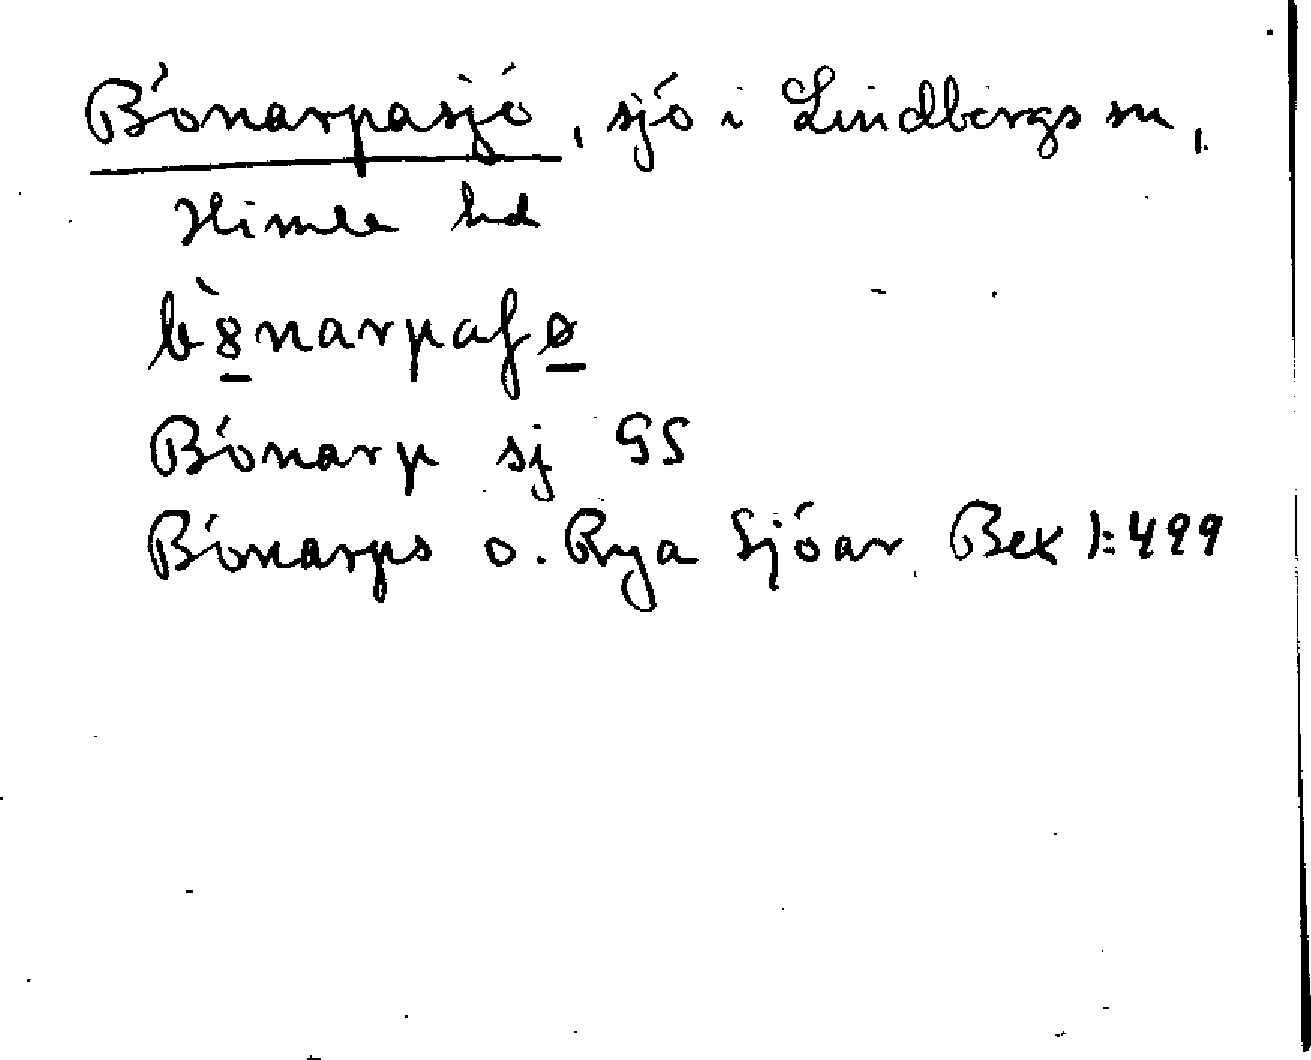 Bönarpasjö, sjö i Lindbergs sn,
Himle hd
Bönarp sj GS
Bönarps o. Rya Sjöar Bex 1:499